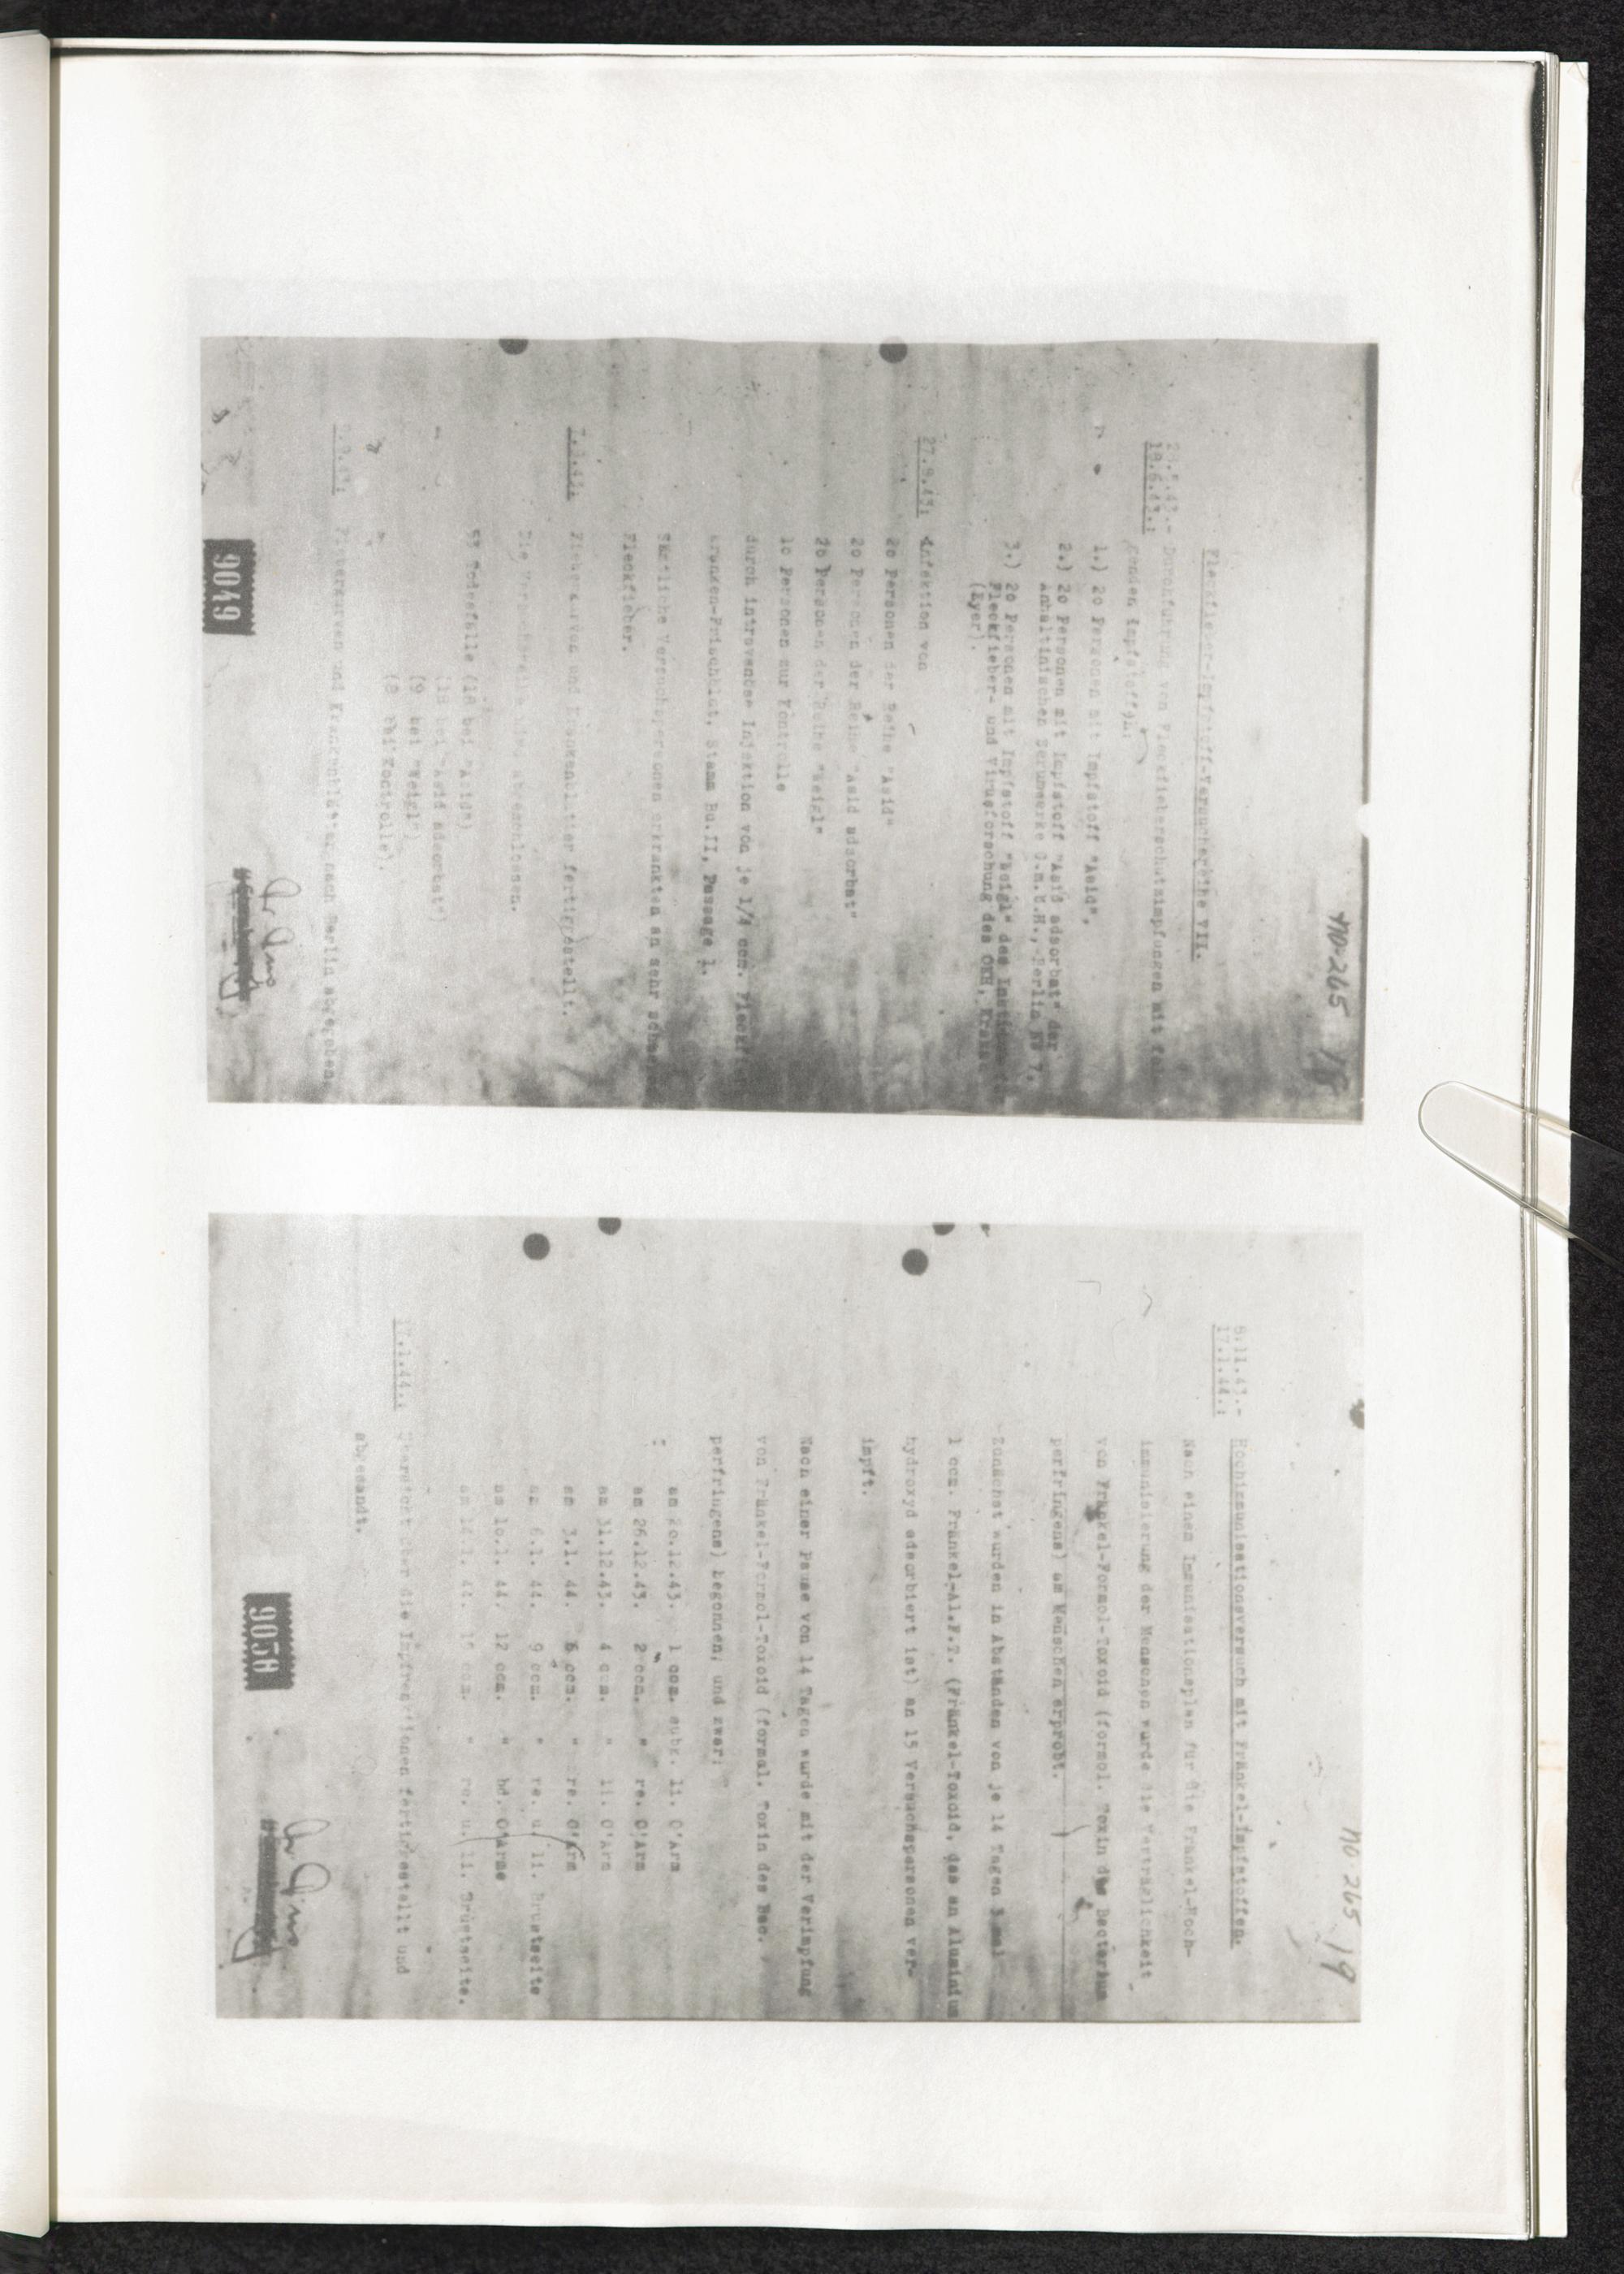 NO-265 18
Fleckfieber-Impfstoff-Versuchsreihe VII.
28.5.43.- Durchführung von Fleckfieberschutzimpfungen mit fol-
19.6.43.: genden Impfstoffen:
1.) 20 Personen mit Impfstoff "Asid",
2.) 20 Personen mit Impfstoff "Asid adsorbat" der
Anhaltinischen Serumwerke G.m.b.H., Berlin NW 7,
3.) 20 Personen mit Impfstoff "Weigl" des Instituts
Fleckfieber- und Virusforschung des OKH, Krakau
(Eyer).
27.8.43: Infektion von
20 Personen der Reihe "Asid"
20 Personen der Reihe "Asid adsorbat"
20 Personen der Reihe "Weigl"
10 Personen zur Kontrolle
durch intravenöse Injektion von je 1/4 ccm. Fleckf
kranken-Frischblut, Stamm Bu.II, Passage 1.
Sämtliche Versuchspersonen erkrankten an sehr schwe
Fleckfieber.
Fieberkurven und Krankenblätter fertiggestellt.
Die Versuchsreihe abgeschlossen.
53 Todesfälle (18 bei "Asid")
(18 bei "Asid adsorbat")
(9 bei "Weigl")
(8 bei Kontrolle).
Fieberkurven und Krankenblätter nach Berlin abgegeben.
Dr Ding
9049
NO-265 19
8.11.43.- Hochimmunisationsversuch mit Fränkel-Impfstoffen.
17.1.44.:
Nach einem Immunisationsplan für die Fränkel-Hoch-
immunisierung der Menschen wurde die Verträglichkeit
von Fränkel-Formol-Toxoid (formol. Toxin des Bacterium
perfringens) am Menschen erprobt.
Zunächst wurden in Abständen von je 14 Tagen 3 mal
1 ccm. Fränkel-Al.F.T. (Fränkel-Toxoid, das an Aluminium
hydroxyd adsorbiert ist) an 15 Versuchspersonen ver-
impft.
Nach einer Pause von 14 Tagen wurde mit der Verimpfung
von Fränkel-Formol-Toxoid (formal. Toxin des Bac.
perfringens) begonnen, und zwar:
am 20.12.43. 1 ccm. subk. li. O'Arm
am 26.12.43. 2 ccm. " re. O'Arm
am 31.12.43. 4 ccm. " li. O'Arm
am 3.1. 44. 6 ccm. " re. O'Arm
am 6.1. 44. 9 ccm. " re. u. li. Brustseite
am 10.1. 44. 12 ccm. " bd. O'Arme
am 14.1. 44. 15 ccm. " re. u. li. Brustseite.
17.1.44.: Übersicht über die Impfreaktionen fertiggestellt und
abgesandt.
Dr Ding
9050